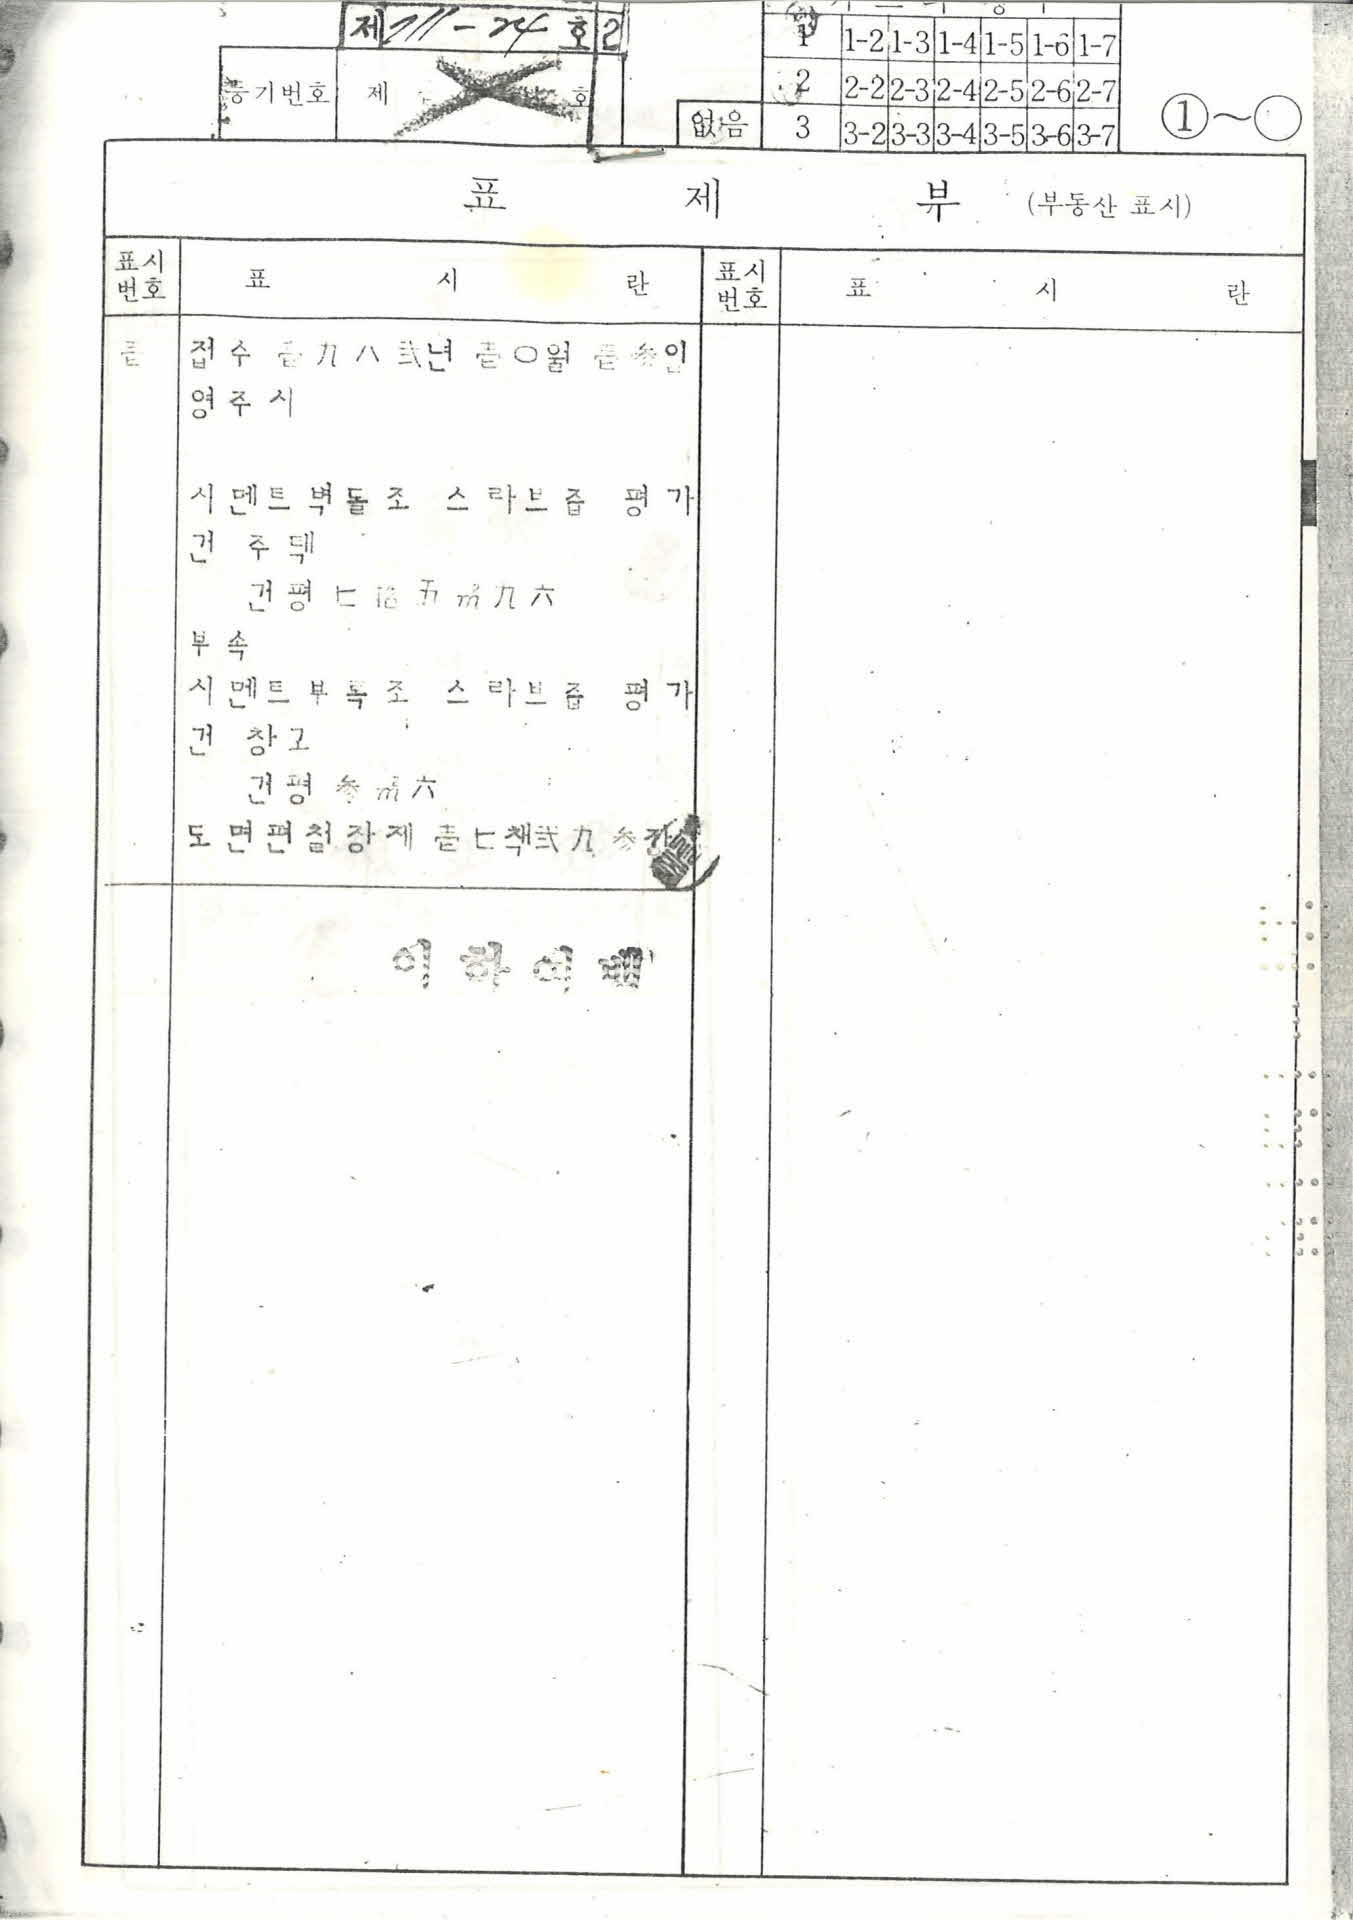 제 호 2
등기번호 제 호
1 1-2 1-3 1-4 1-5 1-6 1-7
2 2-2 2-3 2-4 2-5 2-6 2-7
없음 3 3-2 3-3 3-4 3-5 3-6 3-7
①~○
표 제 부 (부동산 표시)
표시번호 표 시 란 표시번호 표 시 란
壱 접수 壱九八弐년 壱○월 壱参일
영주시
시멘트벽돌조 스라브즙 평가
건 주택
건평 七拾五㎡九六
부속
시멘트부록조 스라브즙 평가
건 창고
건평 参㎡六
도면편철장제 壱七책弐九参장
이하여백